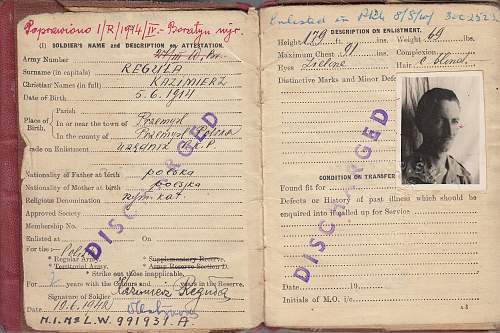 Poprawiono 1/R/1944/IV.- Boratyn mjr.
(I) SOLDIER'S NAME and DESCRIPTION on ATTESTATION.
Army Number
Surname (in capitals) REGUŁA
Christian Names (in full) KAZIMIERZ
Date of Birth 5.6.1914
Place of Birth.
Parish
In or near the town of Przemyśl
In the county of Przemyśl Polska
Trade on Enlistment
Nationality of Father at birth polska
Nationality of Mother at birth polska
Religious Denomination rzym. kat.
Approved Society
Membership No.
Enlisted at On
For the :—
* Regular Army. * Supplementary Reserve.
* Territorial Army. * Army Reserve Section D.
* Strike out those inapplicable.
For years with the Colours and years in the Reserve.
Signature of Soldier Kazimierz Reguła
Date 10.6.1942
M.I. No L.W. 991931.A
DISCHARGED
Enlisted in PRC 5/8/47
DESCRIPTION ON ENLISTMENT.
Height 179 Weight 69 lbs.
Maximum Chest 91 ins. Complexion
Eyes Zielone Hair C. blond.
Distinctive Marks and Minor Defects
CONDITION ON TRANSFER
Found fit for
Defects or History of past illness which should be
enquired into if called up for Service
Date 19
Initials of M.O. i/c
DISCHARGED